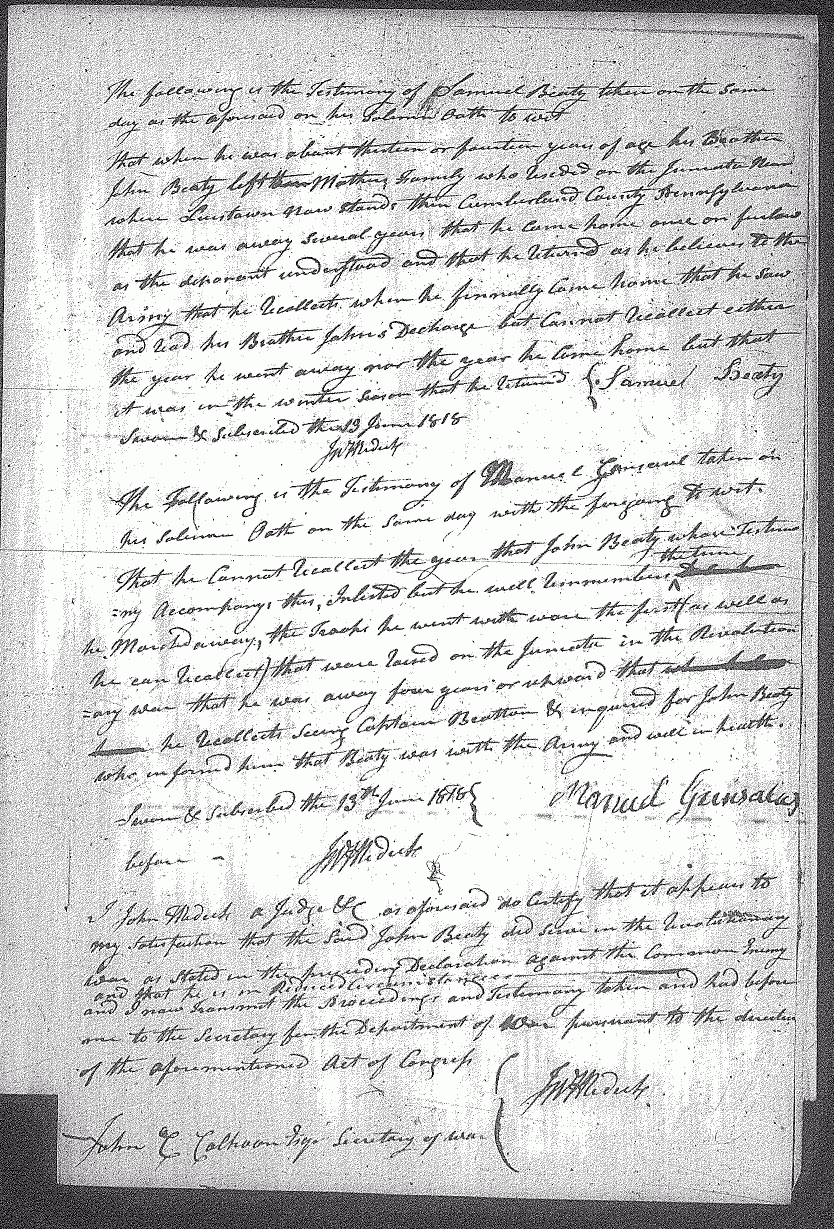 The following is the Testimony of Samuel Beaty taken on the same
day as the aforesaid on his Solemn Oath to wit
that when he was about thirteen or fourteen years of age his Brother
John Beaty left Mothers Family who resided on the Juniata Near
where Lewistown now stands then Cumberland County Pennsylvania
that he was away several years that he came home once on furlow
as the deponant understood and that he returned as he believes to the
Army that he recollects when he finnally came home that he saw
and read his Brother John's Decharge but Cannot recollect either
the year he went away nor the year he came home but that
it was in the winter season that he returned { Samuel Beaty
Sworn & Subscribed the 13 June 1818
The Following is the Testimony of Manuel taken on
his Solemn Oath on the same day with the foregoing to wit.
That he Cannot recollect the year that John Beaty whose Testimo
the time
=ny Accompanys this, Inlested but he well remmembers
he Marched away, the Troops he went with ware the first (as well as
he can recollect) that ware raised on the Juniata in the Revolution
=ary war that he was away four years or upward that
he recollects seeing Captain Bratton & inquired for John Beaty
who informed him that Beaty was with the Army and well in health.
Sworn & Subscribed the 13th June 1818 { Manuel Gunsalus
before
I John a Judge &c as aforesaid do certify that it appears to
my satisfaction that the said John Beaty did serve in the Revolutionary
war as stated in the preceeding Declaration against the Common Enemy
and that he is in Reduced Circumstances
and I now transmit the Proceedings and Testimony taken and had before
me to the Secretary for the Department of War pursuant to the direction
of the aforementioned Act of Congress
John C Calhoon Esqr Secretary of war